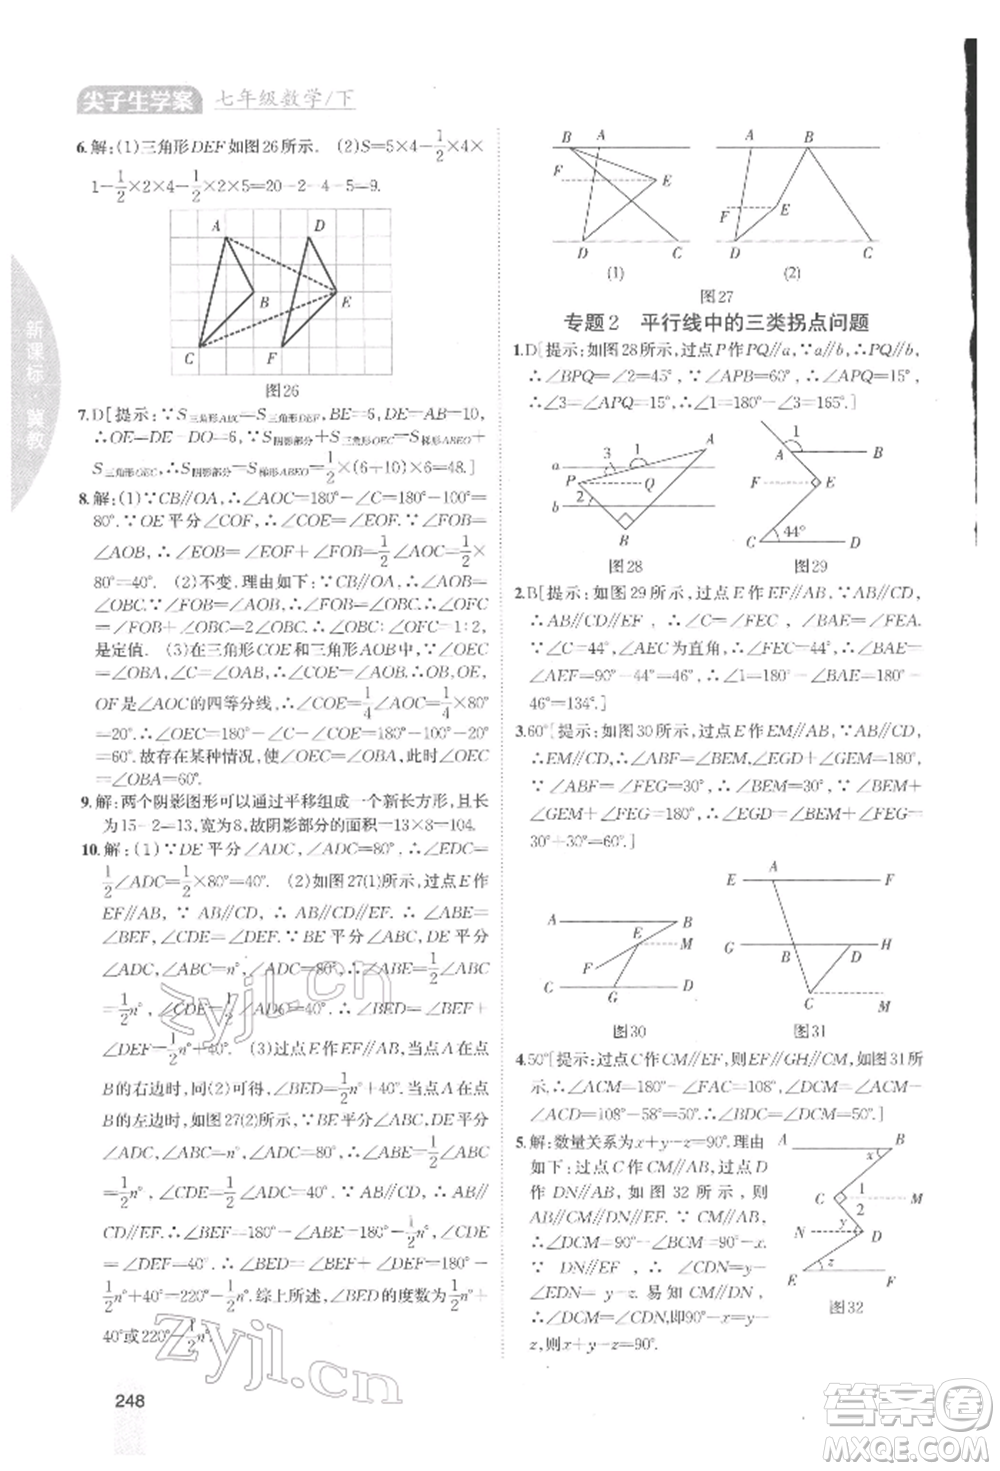 尖子生学案 七年级数学/下
新课标·冀教
6.解:(1)三角形DEF如图26所示. (2)S=5×4-1/2×4×
1-1/2×2×4-1/2×2×5=20-2-4-5=9.
A D B E C F
图26
7.D[提示:∵S三角形ABC=S三角形DEF,BE=6,DE=10,
∴OE=DE-DO=6,∵S阴影部分+S三角形OEC=S梯形ABEO+
S三角形OEC,∴S阴影部分=S梯形ABEO=1/2×(6+10)×6=48.]
8.解:(1)∵CB∥OA,∴∠AOC=180°-∠C=180°-100°=
80°.∵OE平分∠COF,∴∠COE=∠EOF.∵∠FOB=
∠AOB,∴∠EOB=∠EOF+∠FOB=1/2∠AOC=1/2×
80°=40°. (2)不变.理由如下:∵CB∥OA,∴∠AOB=
∠OBC.∵∠FOB=∠AOB,∴∠FOB=∠OBC,∴∠OFC
=∠FOB+∠OBC=2∠OBC,∴∠OBC:∠OFC=1:2,
是定值. (3)在三角形COE和三角形AOB中,∵∠OEC
=∠OBA,∠C=∠OAB,∴∠COE=∠AOB,∴OB,OE,
OF是∠AOC的四等分线,∴∠COE=1/4∠AOC=1/4×80°
=20°.∴∠OEC=180°-∠C-∠COE=180°-100°-20°
=60°.故存在某种情况,使∠OEC=∠OBA,此时∠OEC=
∠OBA=60°.
9.解:两个阴影图形可以通过平移组成一个新长方形,且长
为15-2=13,宽为8,故阴影部分的面积=13×8=104.
10.解:(1)∵DE平分∠ADC,∠ADC=80°,∴∠EDC=
1/2∠ADC=1/2×80°=40°. (2)如图27(1)所示,过点E作
EF∥AB,∵AB∥CD,∴AB∥CD∥EF,∴∠ABE=
∠BEF,∠CDE=∠DEF.∵BE平分∠ABC,DE平分
∠ADC,∠ABC=n°,∠ADC=80°,∴∠ABE=1/2∠ABC=
1/2n°,∠CDE=1/2∠ADC=40°,∴∠BED=∠BEF+
∠DEF=1/2n°+40°. (3)过点E作EF∥AB,当点A在点
B的右边时,同(2)可得,∠BED=1/2n°+40°;当点A在点
B的左边时,如图27(2)所示,∵BE平分∠ABC,DE平分
∠ADC,∠ABC=n°,∠ADC=80°,∴∠ABE=1/2∠ABC=
1/2n°,∠CDE=1/2∠ADC=40°.∵AB∥CD,∴AB∥
CD∥EF,∴∠BEF=180°-∠ABE=180°-1/2n°,∠CDE=
∠DEF=40°,∴∠BED=∠BEF+∠DEF=180°-
1/2n°+40°=220°-1/2n°.综上所述,∠BED的度数为1/2n°+
40°或220°-1/2n°.
248
B A F E D C
(1)
A B F E D C
(2)
图27
专题2 平行线中的三类拐点问题
1.D[提示:如图28所示,过点P作PQ∥a,∵a∥b,∴PQ∥b,
∴∠BPQ=∠2=45°,∵∠APB=60°,∴∠APQ=15°,
∴∠3=∠APQ=15°,∴∠1=180°-∠3=165°.]
a 3 1 A P Q 2 b B
图28
1 A B F E C 44° D
图29
2.B[提示:如图29所示,过点E作EF∥AB,∵AB∥CD,
∴AB∥CD∥EF,∴∠C=∠FEC,∠BAE=∠FEA.
∵∠C=44°,∠AEC为直角,∴∠FEC=44°,∴∠BAE=
∠FEA=90°-44°=46°,∴∠1=180°-∠BAE=180°-
46°=134°.]
3.60°[提示:如图30所示,过点E作EM∥AB,∵AB∥CD,
∴EM∥CD,∴∠ABF=∠BEM,∠EGD+∠GEM=180°,
∵∠ABF=∠FEG=30°,∠EGD+∠GEM=180°,∴
∠GEM=∠BEM+∠FEG=180°,∴∠EGD=
30°+30°=60°.]
A B E M F C G D
图30
E A F G B D H C M
图31
4.50°[提示:如图31所示,过点C作CM∥EF,则EF∥GH∥CM,如图31所
示.∴∠ACM=180°-∠FAC=108°,∠DCM=∠ACM-
∠ACD=108°-58°=50°,∴∠BDC=∠DCM=50°.]
5.解:数量关系为x+y-z=90°.理由
如下:过点C作CM∥AB,过点D
作DN∥AB,如图32所示,则
AB∥CM∥DN∥EF.∴∠1=x.
∵∠BCD=90°,∴∠2=90°-x.
∵DN∥EF,∴∠EDN=z,
∴∠CDN=y-z.易知CM∥DN,
∴∠DCM=∠CDN,即90°-x=y
-z,则x+y-z=90°.
A B x C 1 2 M N y D E z F
图32
zyjl.cn
zyjl.cn
答案圈
MXQE.COM